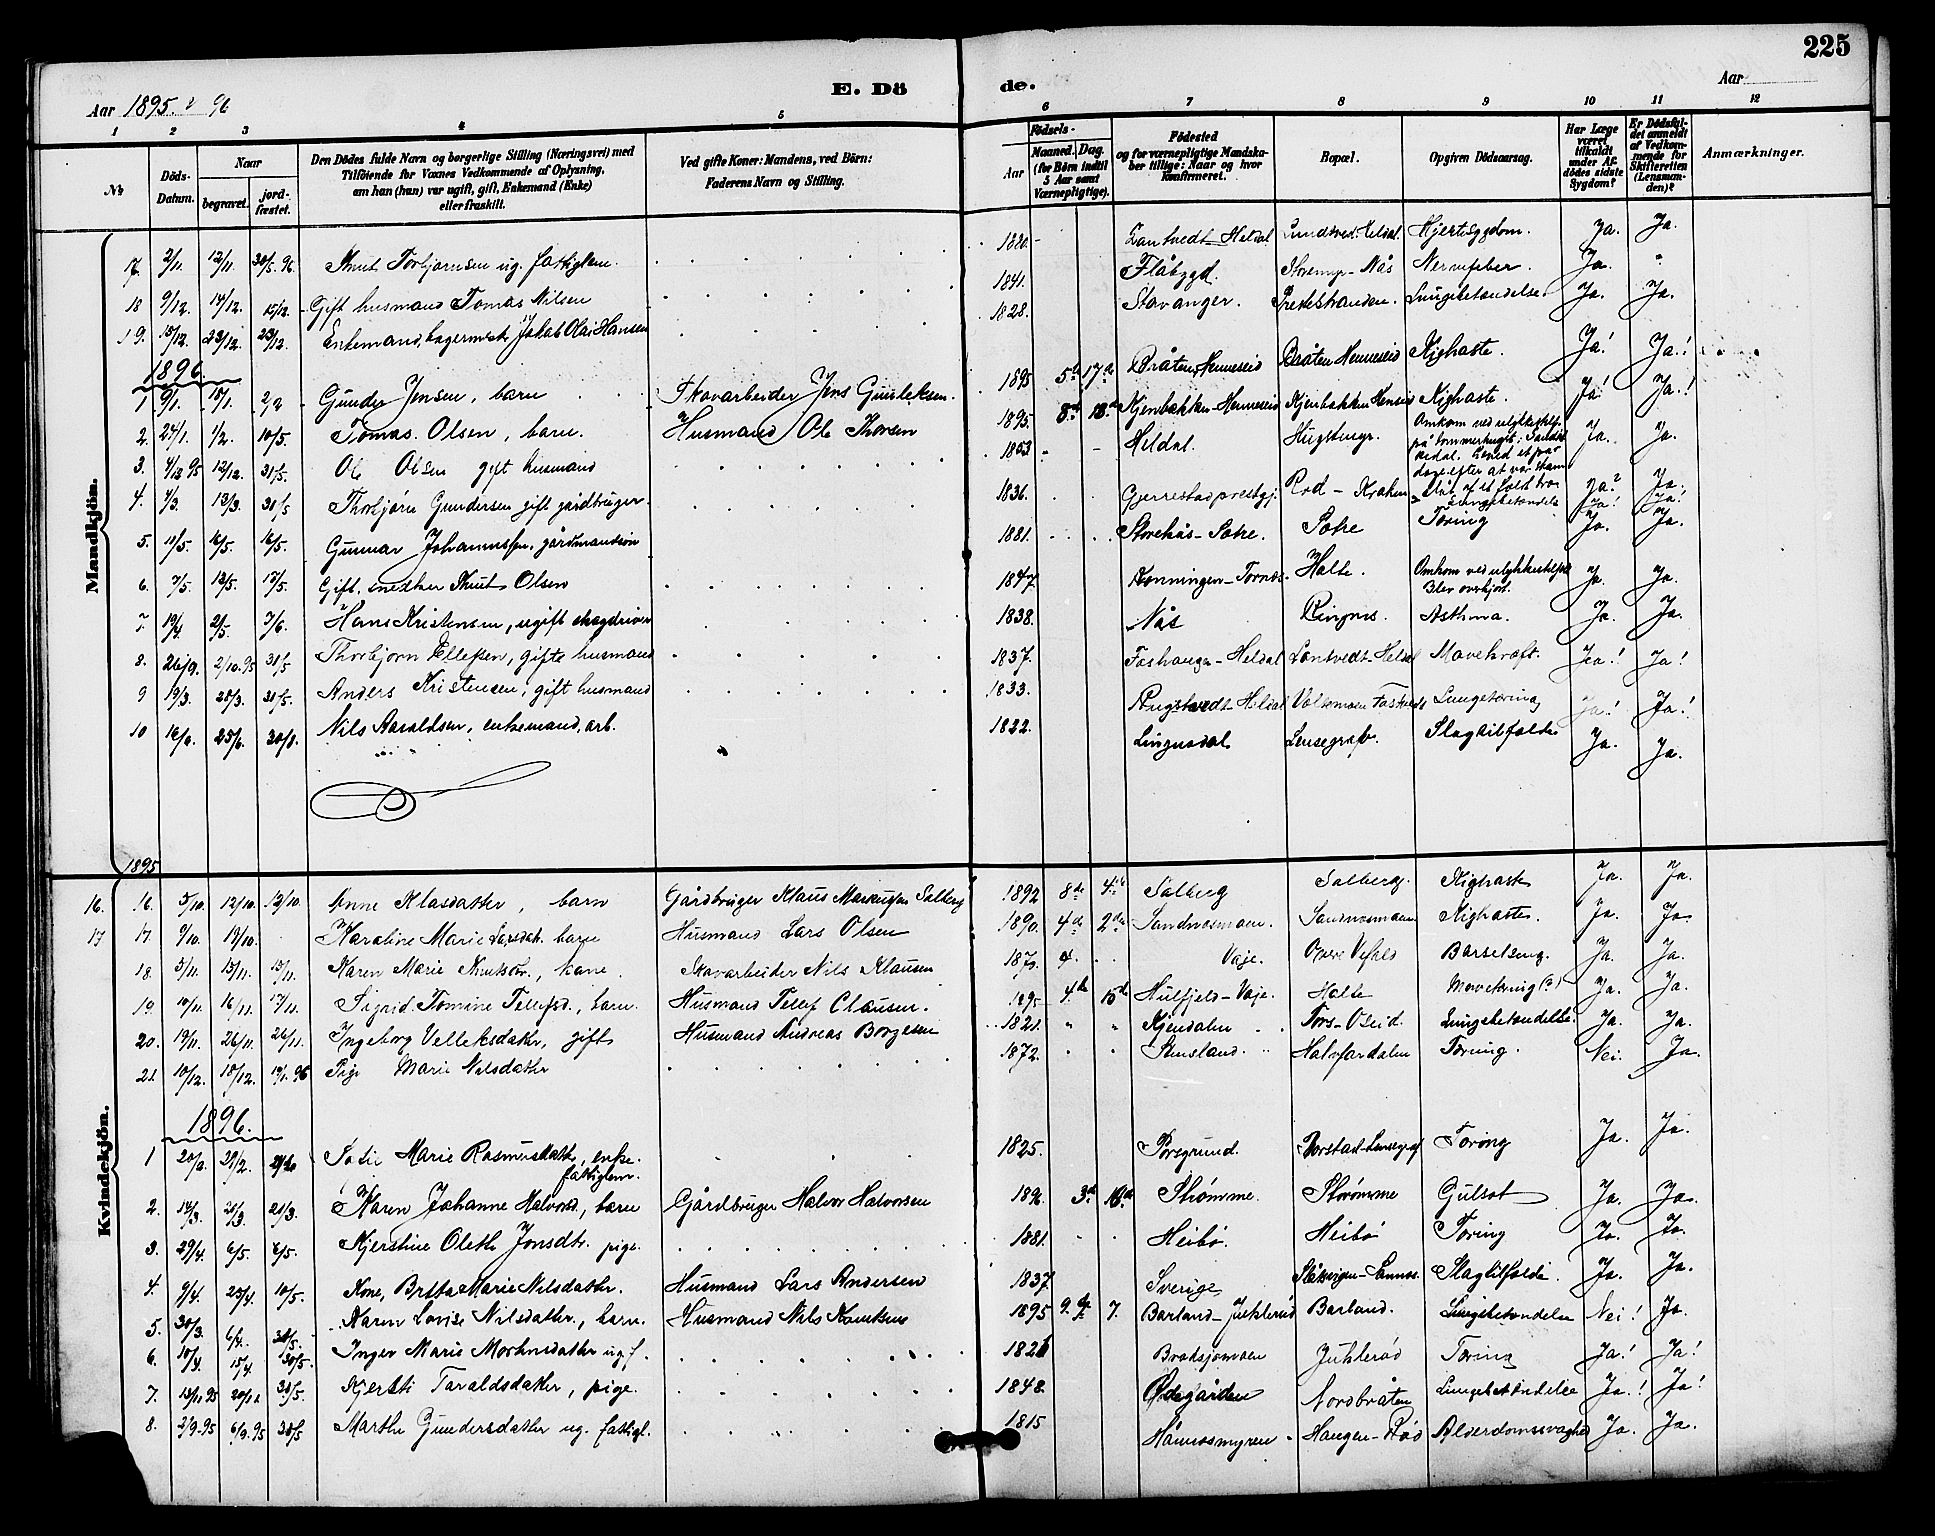 225
E. Döde.
Aar 1895 & 96
Aar
1 2 3 4 5 6 7 8 9 10 11 12
No
Döds-Datum.
Naar
begravet.
jordfæstet.
Den Dödes fulde Navn og borgerlige Stilling (Næringsvei) med Tilföiende for Voxnes Vedkommende af Oplysning, om han (hun) var ugift, gift, Enkemand (Enke) eller fraskilt.
Ved gifte Koner: Mandens, ved Börn: Faderens Navn og Stilling.
Födsels-
Aar
Maaned. Dag.
(for Börn indtil 5 Aar samt Værnepligtige).
Födested og for værnepligtige Mandskaber tillige: Naar og hvor konfirmeret.
Bopæl.
Opgiven Dödsaarsag.
Har Læge været tilkaldt under Afdödes sidste Sygdom?
Er Dödsfaldet anmeldt af Vedkommende for Skifteretten (Lensmanden)?
Anmærkninger.
Mandkjön.
17. 2/11. 12/11. 30/5. 96. Knut Torbjørnsen ug. fattiglem. 1820 Lantvedt Heldal Hjertesygdom. Ja. Ja.
18 9/12. 14/12. 15/12. Gift husmand Tomas Nilsen 1841. Flåbygd. Storemyr - Nås Nervefeber. Ja.
19. 18/12. 23/12. 23/12. Enkemand, bagermester Jakob Olai Hansen 1828. Stavanger. Prestestranden. Lungebetændelse. Ja. Ja.
1896
1 9/1. 18/1. 2/2 Gunder Jensen, barn Skovarbeider Jens Gunleksen. 1895 5te 17de Bråten, Henneseid Bråten Henneseid Kighoste. Ja! Ja!
2. 24/1. 1/2. 10/5. Tomas Olsen, barn. Husmand Ole Thorsen 1895. 8de 18de Kjenbakken - Henneseid Kjenbakken Henseid Kighoste. Ja! Ja!
3. 4/12 95 12/12. 31/5. Ole Olsen gift husmand 1853 Heldal. Omkom ved ulykkestilf. på tommerhugst i Sandøkedal. Levede et par dage efter at var skamslåt af et faldt træ Ja. Ja.
4. 4/3. 13/3. 31/5 Thorbjørn Gundersen gift gårdbruger. 1836. Gjerrestad prestegj. Rød - Kroken Lungebetændelse Ja? Ja. Ja! Ja!
5. 11/5. 16/5. 16/5. Gunnar Johannessen, gårdmandssøn 1881. Storehås - Toke. Toke Tæring Ja. Ja.
6. 7/5. 13/5. 17/5. Gift, snedker Knut Olsen 1847. Halte. Omkom ved ulykkestilfæld Blev overkjørt. Ja. Ja.
7. 19/4. 2/5. 7/6. Hans Kristensen, ugift 1838. Nås Ringnes. Asthma. Ja. Ja.
8. 26/9. 2/10. 95 31/5 Thorbjørn Ellefsen, gifte husmand 1837. Heldal Lantvedt - Heldal Mavekræft. Ja! Ja!
9 19/3. 28/3. 31/5. Anders Kristensen, gift husmand 1833. Heldal Lungetæring Ja! Ja!
10 16/6. 25/6. 30/8. Nils Haraldsen, enkemand, arb. 1822. Lensegrav. Slagtilfælde Ja. Ja.
Kvindekjön.
1895
16. 16. 5/10. 12/10. 13/10. Anne Klasdatter, barn Gårdbruger Klaus Markusen Solberg 1892 8de 4de Solberg Solberg. Kighoste Ja. Ja.
17 17. 9/10. 19/10. Karoline Marie Larsdatr. barn Husmand Lars Olsen 1890. 4de 2de Sandnesmoen. Sandnesmoen Kighoste. Ja. Ja
18. 5/11. 15/11. 15/11. Karen Marie Knutsdtr., kone. Skovarbeider Nils Klausen 1870. 4. Vaje. Barselseng. Ja. Ja.
19. 10/11. 16/11. 17/11. Sigrid Tomine Tellefsd., barn. Husmand Tellef Clausen. 1895. 4de 15de Hulfjeld - Vaje. Halte (?) Ja. Ja.
20. 19/11. 26/11. 26/11. Ingeborg Velleksdatter, gift Husmand Andreas Børgesen 1821. " " Kjendalen Tors-Øseid. Lungebetændelse. Ja. Ja.
21. 10/12. 18/12. 19/1. 96 Pige Marie Nilsdatter 1872. Stensland. Halvfardalen Tæring. Nei. Ja.
1896.
1 20/2. 29/2. Sofie Marie Rasmusdatter, enke. fattiglem. 1825. Porsgrund. Tæring Ja. Ja.
2. 14/3. 21/3. 21/3. Karen Johanne Halvorsd., barn Gårdbruger Halvor Halvorsen 1896. 3de 10de Strømme. Strømme Gulsot Ja. Ja.
3. 29/4. 6/5. 6/5. Kjerstine Olethe Jonsdtr. pige. 1881. Heibø. Heibø Tæring Ja. Ja.
4. 9/4. 23/4. 10/5. Kone, Britta Marie Nilsdatter. Husmand Lars Andersen 1837. Sverige Slagtilfælde. Ja. Ja.
5. 30/3. 6/4. 30/5. Karen Lovise Nilsdatter, barn. Husmand Nils Knutsen 1895 9. 7. Barland - Juklerød Barland. Lungebetændelse Nei! Ja.
6. 10/4. 15/4. 30/5. Inger Marie Mortensdatter ug. f. 1826 Brødsjømoen Juklerød Tæring Ja! Ja!
7. 13/11 95 20/11 30/5. Kjersti Taraldsdatter, pige. 1848. Ødegården Nordbråten Lungebetændelse Ja! Ja!
8. 2/9. 95 6/9. 95 30/5 Marthe Gundersdatter ug. fattigl. 1815 Hånesmyren Haugen - Rød Alderdomssvaghed Ja. Ja.